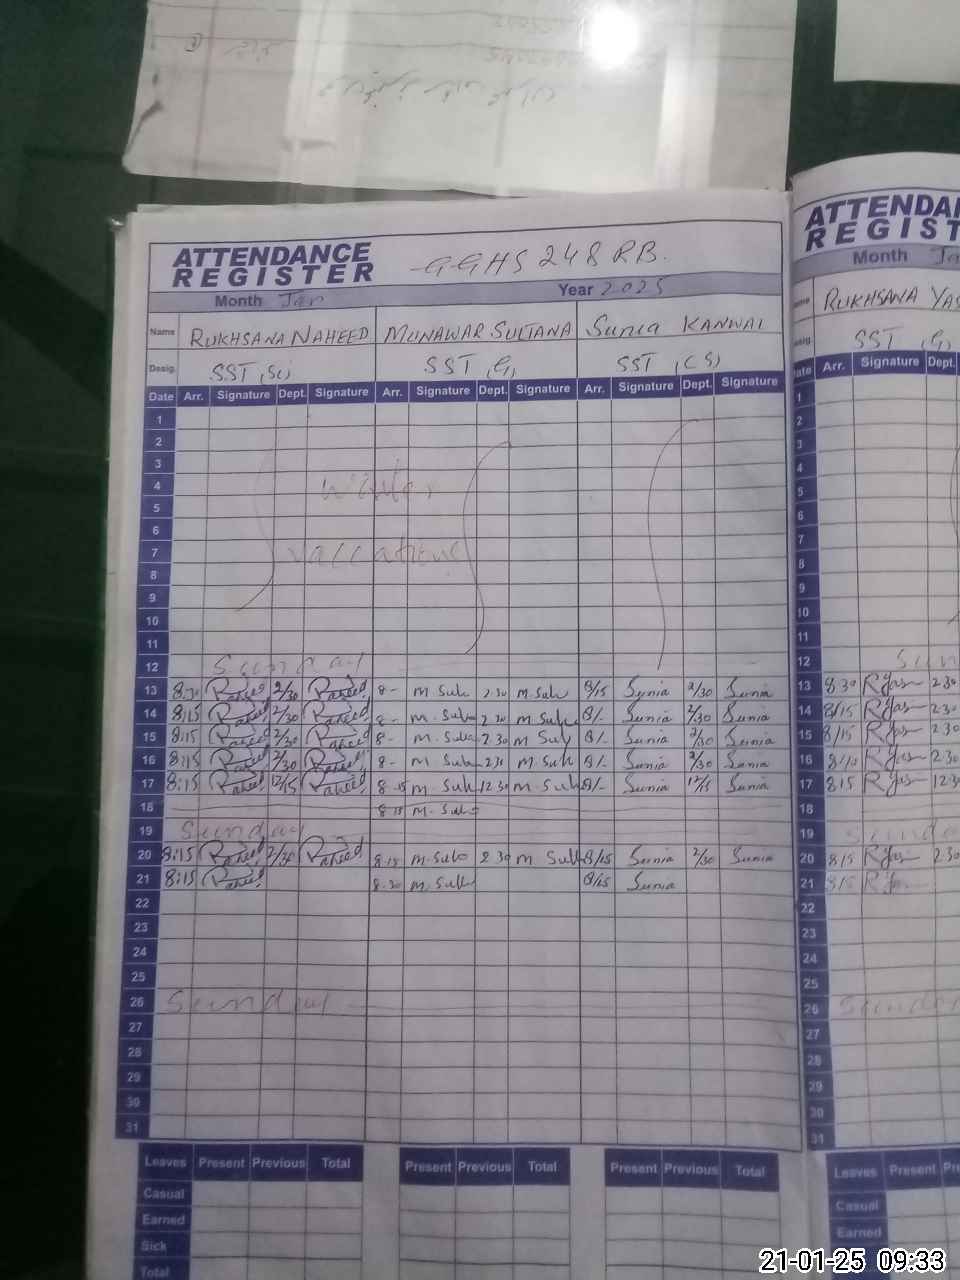 ATTENDANCE REGISTER GGHS 248 RB.
Month Jan Year 2025
Name RUKHSANA NAHEED MUNAWAR SULTANA Sunia KANWAL
Desig. SST (Sc) SST (G) SST (CS)
Date Arr. Signature Dept. Signature Arr. Signature Dept. Signature Arr. Signature Dept. Signature
1
2
3
4 winter
5
6
7 vaccations
8
9
10
11
12 Sunday
13 8:30 Raheed 2/30 Raheed 8- M Sul 2.30 M Sul 8/15 Synia 2/30 Sunia
14 8:15 Raheed 2/30 Raheed 8- M. Sul 2.30 M Sul 8/- Sunia 2/30 Sunia
15 8:15 Raheed 2/30 Raheed 8- M. Sul 2.30 M Sul 8/- Sunia 2/30 Sunia
16 8:15 Raheed 2/30 Raheed 8- M. Sul 2.30 M. Sul 8/- Sunia 2/30 Sunia
17 8:15 Raheed 12/15 Raheed 8.15 M. Sul 12.30 M. Sul 8/- Sunia 12/15 Sunia
18 8.15 M. Sul
19 Sunday
20 8:15 Raheed 2/30 Raheed 8.15 M. Sul 2.30 M Sul 8/15 Sunia 2/30 Sunia
21 8:15 Raheed 8.30 M. Sul 8/15 Sunia
22
23
24
25
26 Sunday
27
28
29
30
31
Leaves Present Previous Total Present Previous Total Present Previous Total
Casual
Earned
Sick
Total
ATTENDAN
REGIST
Month Ja
RUKHSANA YAS
SST (G)
Date Arr. Signature Dept.
1
2
3
4
5
6
7
8
9
10
11
12 Sun
13 8 30 RYas 2 30
14 8/15 RYas 2 30
15 8/15 RYas 2 30
16 8/10 RYas 2 30
17 8 15 RYas 12 30
18
19 Sunda
20 8/15 RYas 2 30
21 8/5 RYas
22
23
24
25
26 Sunday
27
28
29
30
31
Leaves Present Pre
Casual
Earned
21-01-25 09:33